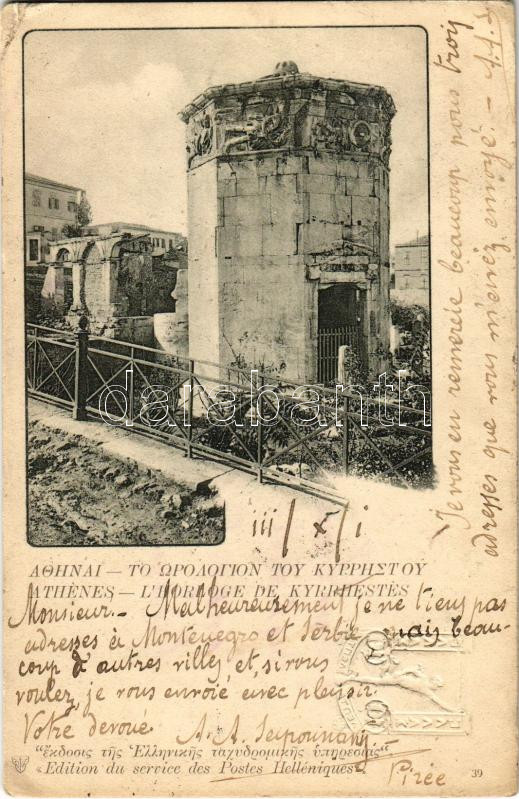 Je vous en remercie beaucoup pous troij
adresses que vous m'avez envoyé. - A.A.S
darabanth
iii / x / i
ΑΘΗΝΑΙ — ΤΟ ΩΡΟΛΟΓΙΟΝ ΤΟΥ ΚΥΡΡΗΣΤΟΥ
ATHÈNES — L'HORLOGE DE KYRRHESTÈS
Monsieur. - Malheureusement je ne tiens pas
adresses à Montenegro et Serbie mais beau-
coup d'autres villes et, si vous
voulez, je vous envoié avec plaisir.
Votre devoué A. A.
"ἔκδοσις τῆς Ἑλληνικῆς ταχυδρομικῆς ὑπηρεσίας"
«Edition du service des Postes Helléniques»
Pirée
39